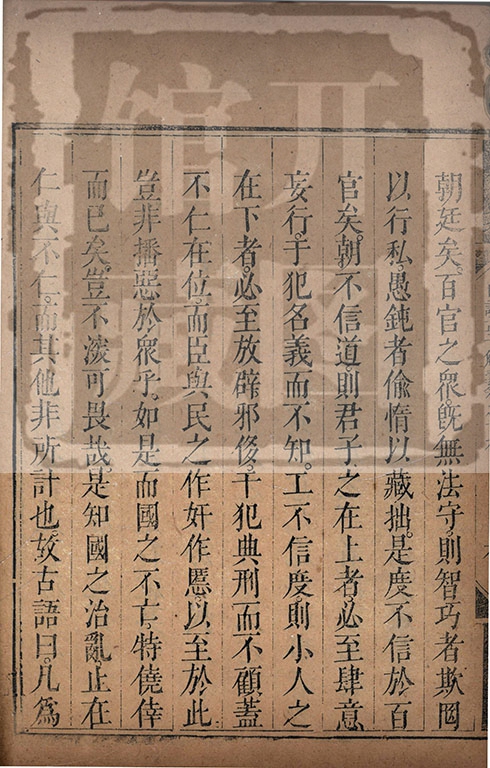 朝廷矣。百官之衆。旣無法守。則智巧者欺罔
以行私。愚鈍者偷惰以藏拙。是度不信於百
官矣。朝不信道。則君子之在上者。必至肆意
妄行。于犯名義而不知。工不信度。則小人之
在下者。必至放辟邪侈。干犯典刑而不顧。蓋
不仁在位。而臣與民之作奸作慝。以至於此
豈非播惡於衆乎。如是而國之不亡。特僥倖
而已矣。豈不深可畏哉。是知國之治亂。止在
仁與不仁。而其他非所計也。故古語曰。凡爲